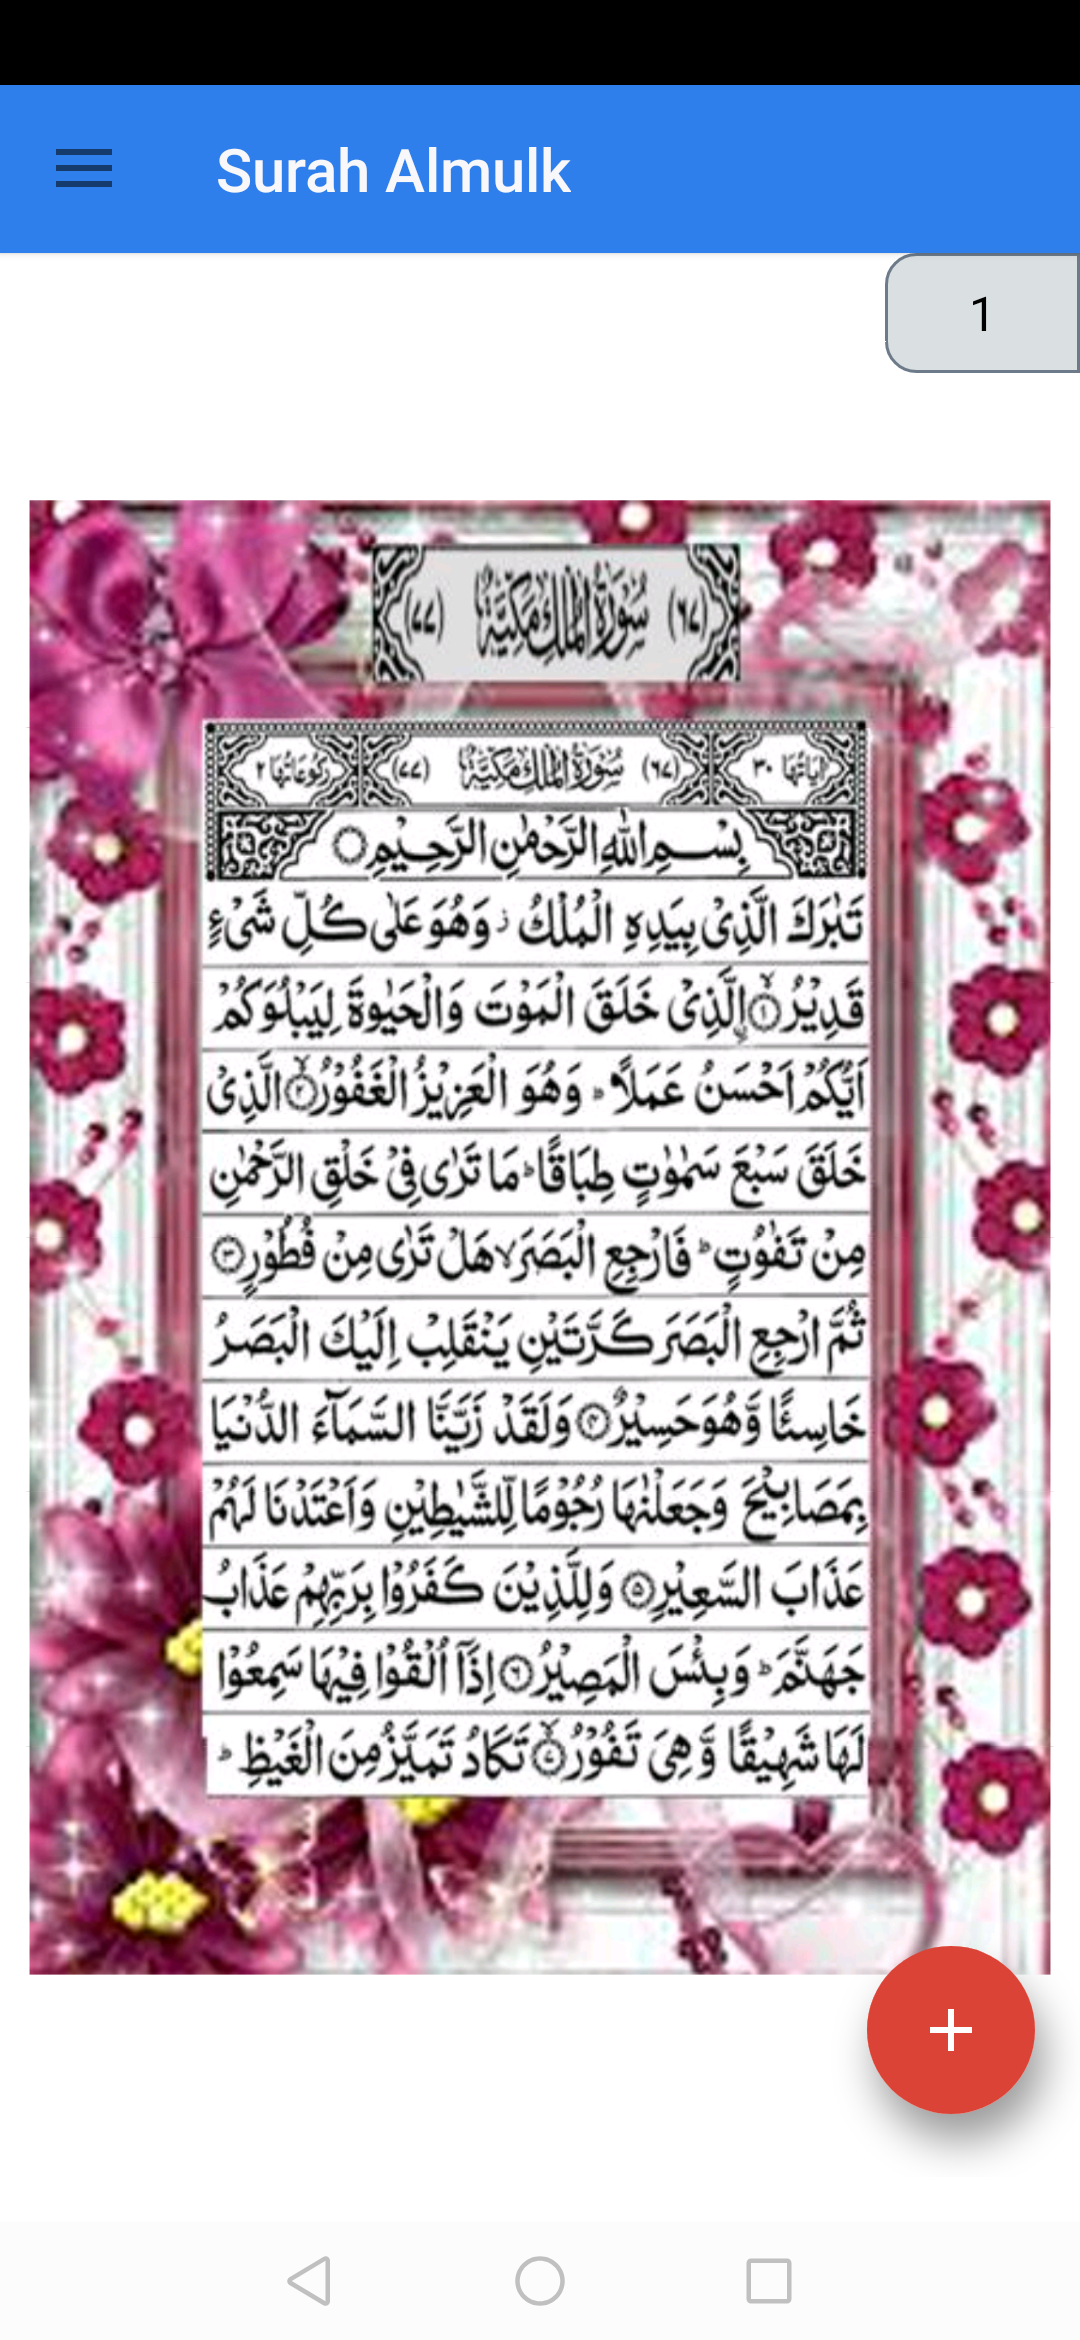 Surah Almulk
1
(٦٧) سُوْرَةُ الْمُلْكِ مَكِّيَّةٌ (٧٧)
اٰيَاتُهَا ٣٠ (٦٧) سُوْرَةُ الْمُلْكِ مَكِّيَّةٌ (٧٧) رُكُوْعَاتُهَا ٢
بِسْمِ اللّٰهِ الرَّحْمٰنِ الرَّحِيْمِ
تَبٰرَكَ الَّذِيْ بِيَدِهِ الْمُلْكُ ز وَهُوَ عَلٰى كُلِّ شَيْءٍ
قَدِيْرُ ۙ﴿١﴾ اۨلَّذِيْ خَلَقَ الْمَوْتَ وَالْحَيٰوةَ لِيَبْلُوَكُمْ
اَيُّكُمْ اَحْسَنُ عَمَلًا ؕ وَهُوَ الْعَزِيْزُ الْغَفُوْرُ ۙ﴿٢﴾ الَّذِيْ
خَلَقَ سَبْعَ سَمٰوٰتٍ طِبَاقًا ؕ مَا تَرٰى فِيْ خَلْقِ الرَّحْمٰنِ
مِنْ تَفٰوُتٍ ؕ فَارْجِعِ الْبَصَرَ ۙ هَلْ تَرٰى مِنْ فُطُوْرٍ ﴿٣﴾
ثُمَّ ارْجِعِ الْبَصَرَ كَرَّتَيْنِ يَنْقَلِبْ اِلَيْكَ الْبَصَرُ
خَاسِئًا وَّهُوَ حَسِيْرٌ ﴿٤﴾ وَلَقَدْ زَيَّنَّا السَّمَآءَ الدُّنْيَا
بِمَصَابِيْحَ وَجَعَلْنٰهَا رُجُوْمًا لِّلشَّيٰطِيْنِ وَاَعْتَدْنَا لَهُمْ
عَذَابَ السَّعِيْرِ ﴿٥﴾ وَلِلَّذِيْنَ كَفَرُوْا بِرَبِّهِمْ عَذَابُ
جَهَنَّمَ ؕ وَبِئْسَ الْمَصِيْرُ ﴿٦﴾ اِذَآ اُلْقُوْا فِيْهَا سَمِعُوْا
لَهَا شَهِيْقًا وَّهِيَ تَفُوْرُ ۙ﴿٧﴾ تَكَادُ تَمَيَّزُ مِنَ الْغَيْظِ ؕ